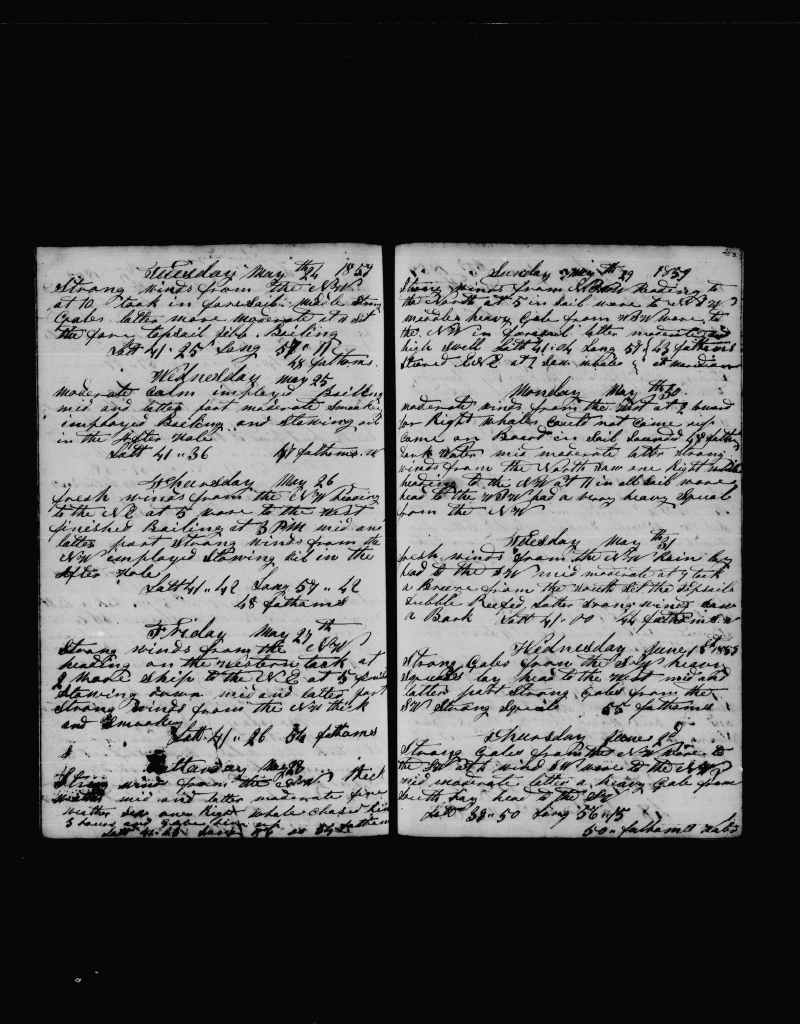 Tuesday May 24th 1859
Strong winds from the NW
at 10 took in foresail midle Strong
Gales latter more moderate at 11 set
the fore topsail still Boiling
Latt 41" 25 Long 57" 11
48 fathoms
Wednesday May 25
moderate Calm imployed Boiling
mid and latter part moderate Smokey
imployed Boiling and Stowing oil
in the After Hole
Latt 41" 36 47 fathoms w
Thursday May 26
fresh winds from the NW heading
to the NE at 5 wore to the West
finished Boiling at 3 PM mid and
latter part Strong winds from the
NW imployed Stowing oil in the
After Hole
Latt 41" 42 Long 57" 42
48 fathoms
Friday May 27th
Strong winds from the NW
heading on the western tack at
2 wore Ship to the NE at 5
Stowing down mid and latter part
Strong winds from the NW thick
and Smookey
Latt 41" 26 54 fathoms
Sattarday May 28
Strong wind from the thick
wether mid and latter moderate fine
wether Saw one Right Whale chased him
3 hours and gave him up
Latt 41 Long
Sunday May 29th 1859
Strong winds from heading to
the North at 5 in sail wore to
middle heavy Gale from wore to
the NW in foresail latter moderate and
high Swell Latt 41"04 Long 57 43 fathoms
Steared ENE at 7 Saw whales at meridian
Monday May 30th
moderate winds from the West at 2 lowed
for Right Whales Could not Come up
Came on Board in Sail Sounded 48 fathoms
Dark Water mid moderate latter Strong
winds from the North Saw one Right whale
heading to the NW at 11 in all Sail wore
head to the WSW had a very heavy Squal
from the NW
Tuesday May 31th
fresh winds from the NW
head to the SW mid moderate at 7 took
a Breeze from the South Set the Topsails
Dubble Reefed Latter Strong winds Saw
a Bark Latt 41"00 44 fathoms w
Wednesday June 1st 1859
Strong Gales from the SW heavy
Squales lay head to the West mid and
latter part Strong Gales from the
SW Strong Squals 55 fathoms
Thursday June 2
Strong Gales from the NW wore to
the SW at wind SW wore to the NW
mid moderate latter a heavy Gale from
South Lay head to the SW
Latt 38"50 Long 56"15
50" fathoms water